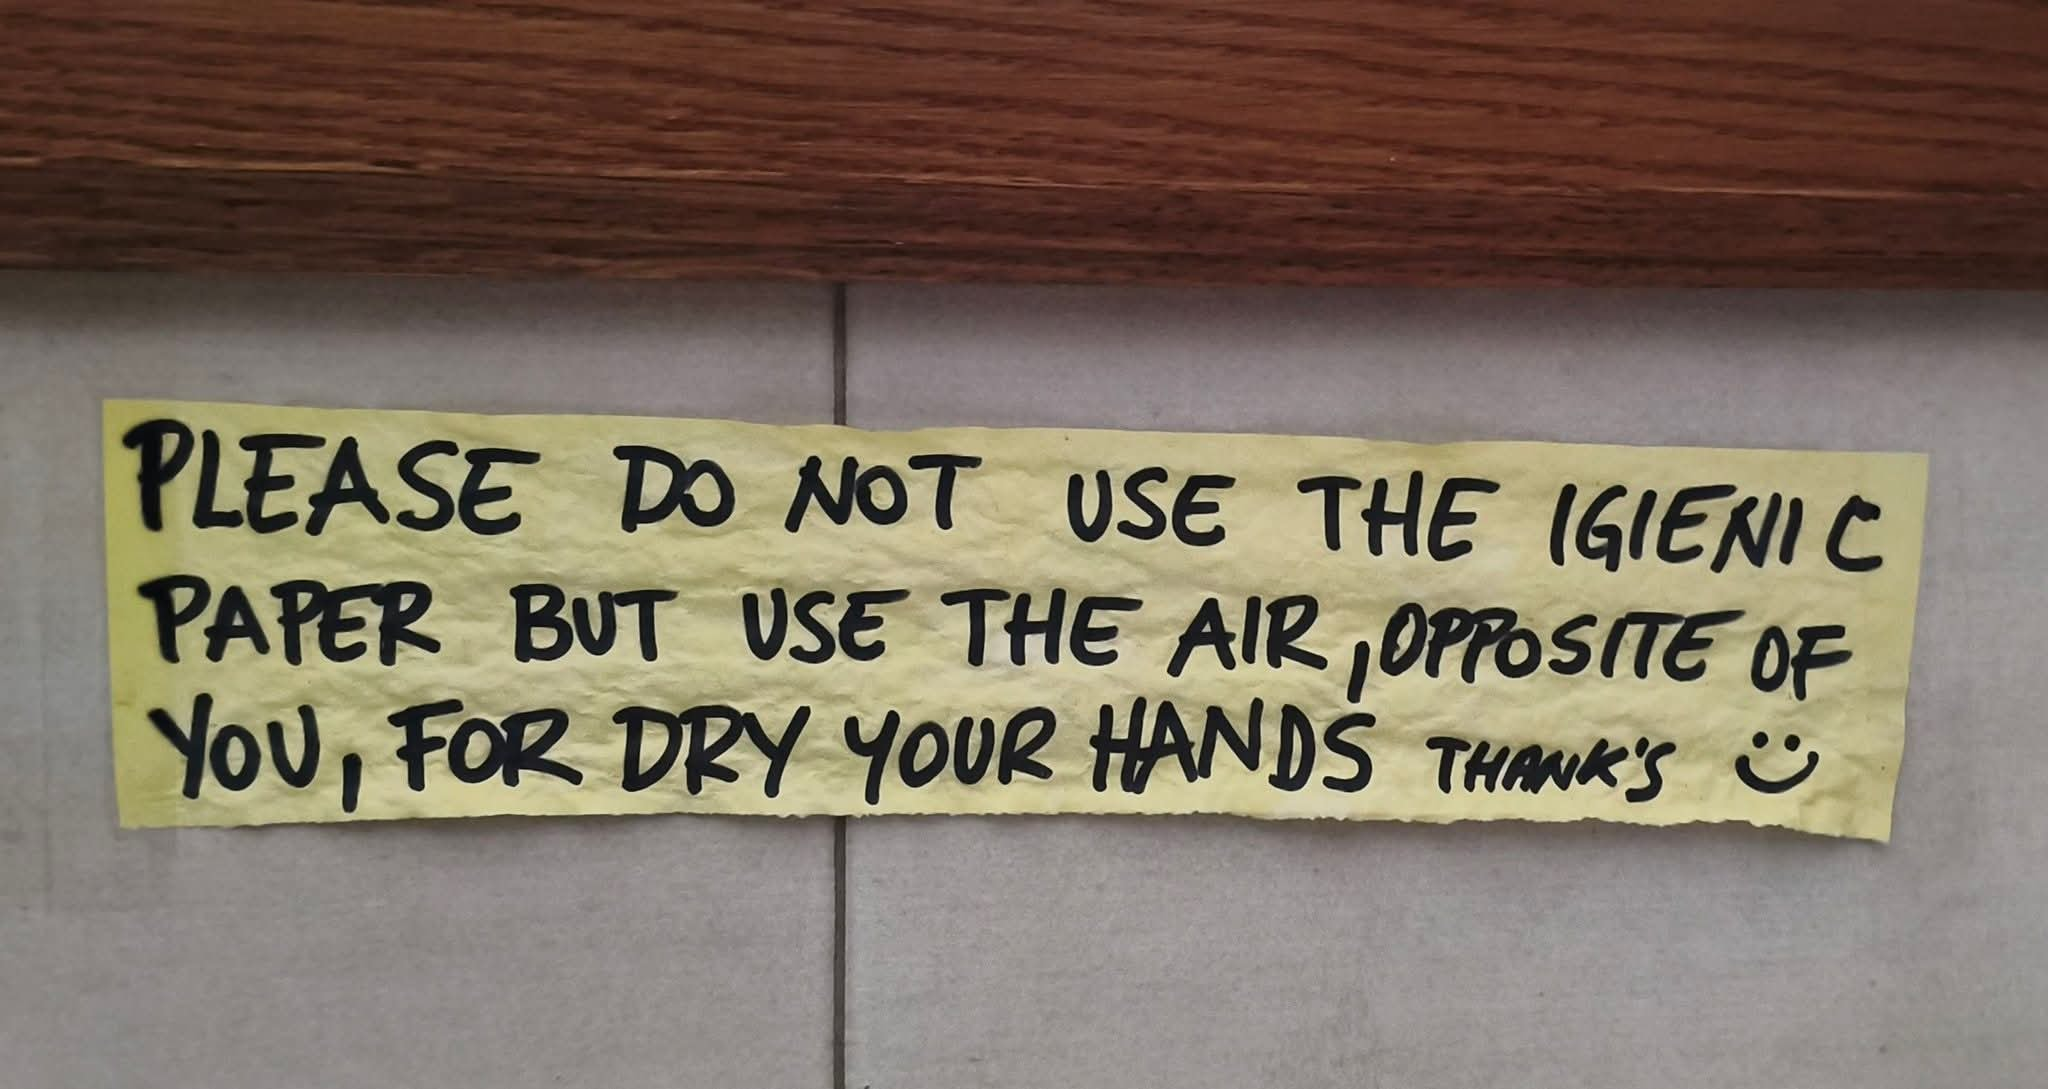 PLEASE DO NOT USE THE IGIENIC
PAPER BUT USE THE AIR, OPPOSITE OF
YOU, FOR DRY YOUR HANDS THANK'S